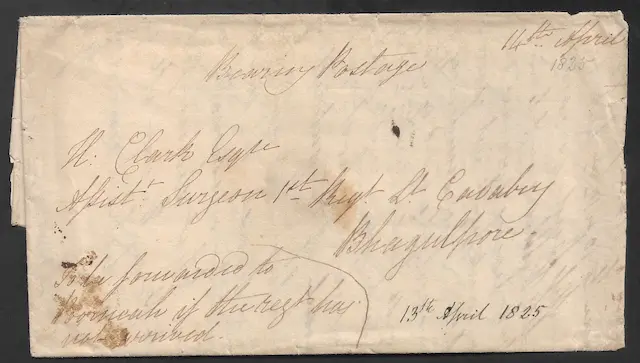 14th April
1825
Bearing Postage
H: Clark Esqre
Assist.t Surgeon 1st Regt Lt Cavalry
Bhagulpore.
To be forwarded to
if the regt has
not arrived.
13th April 1825